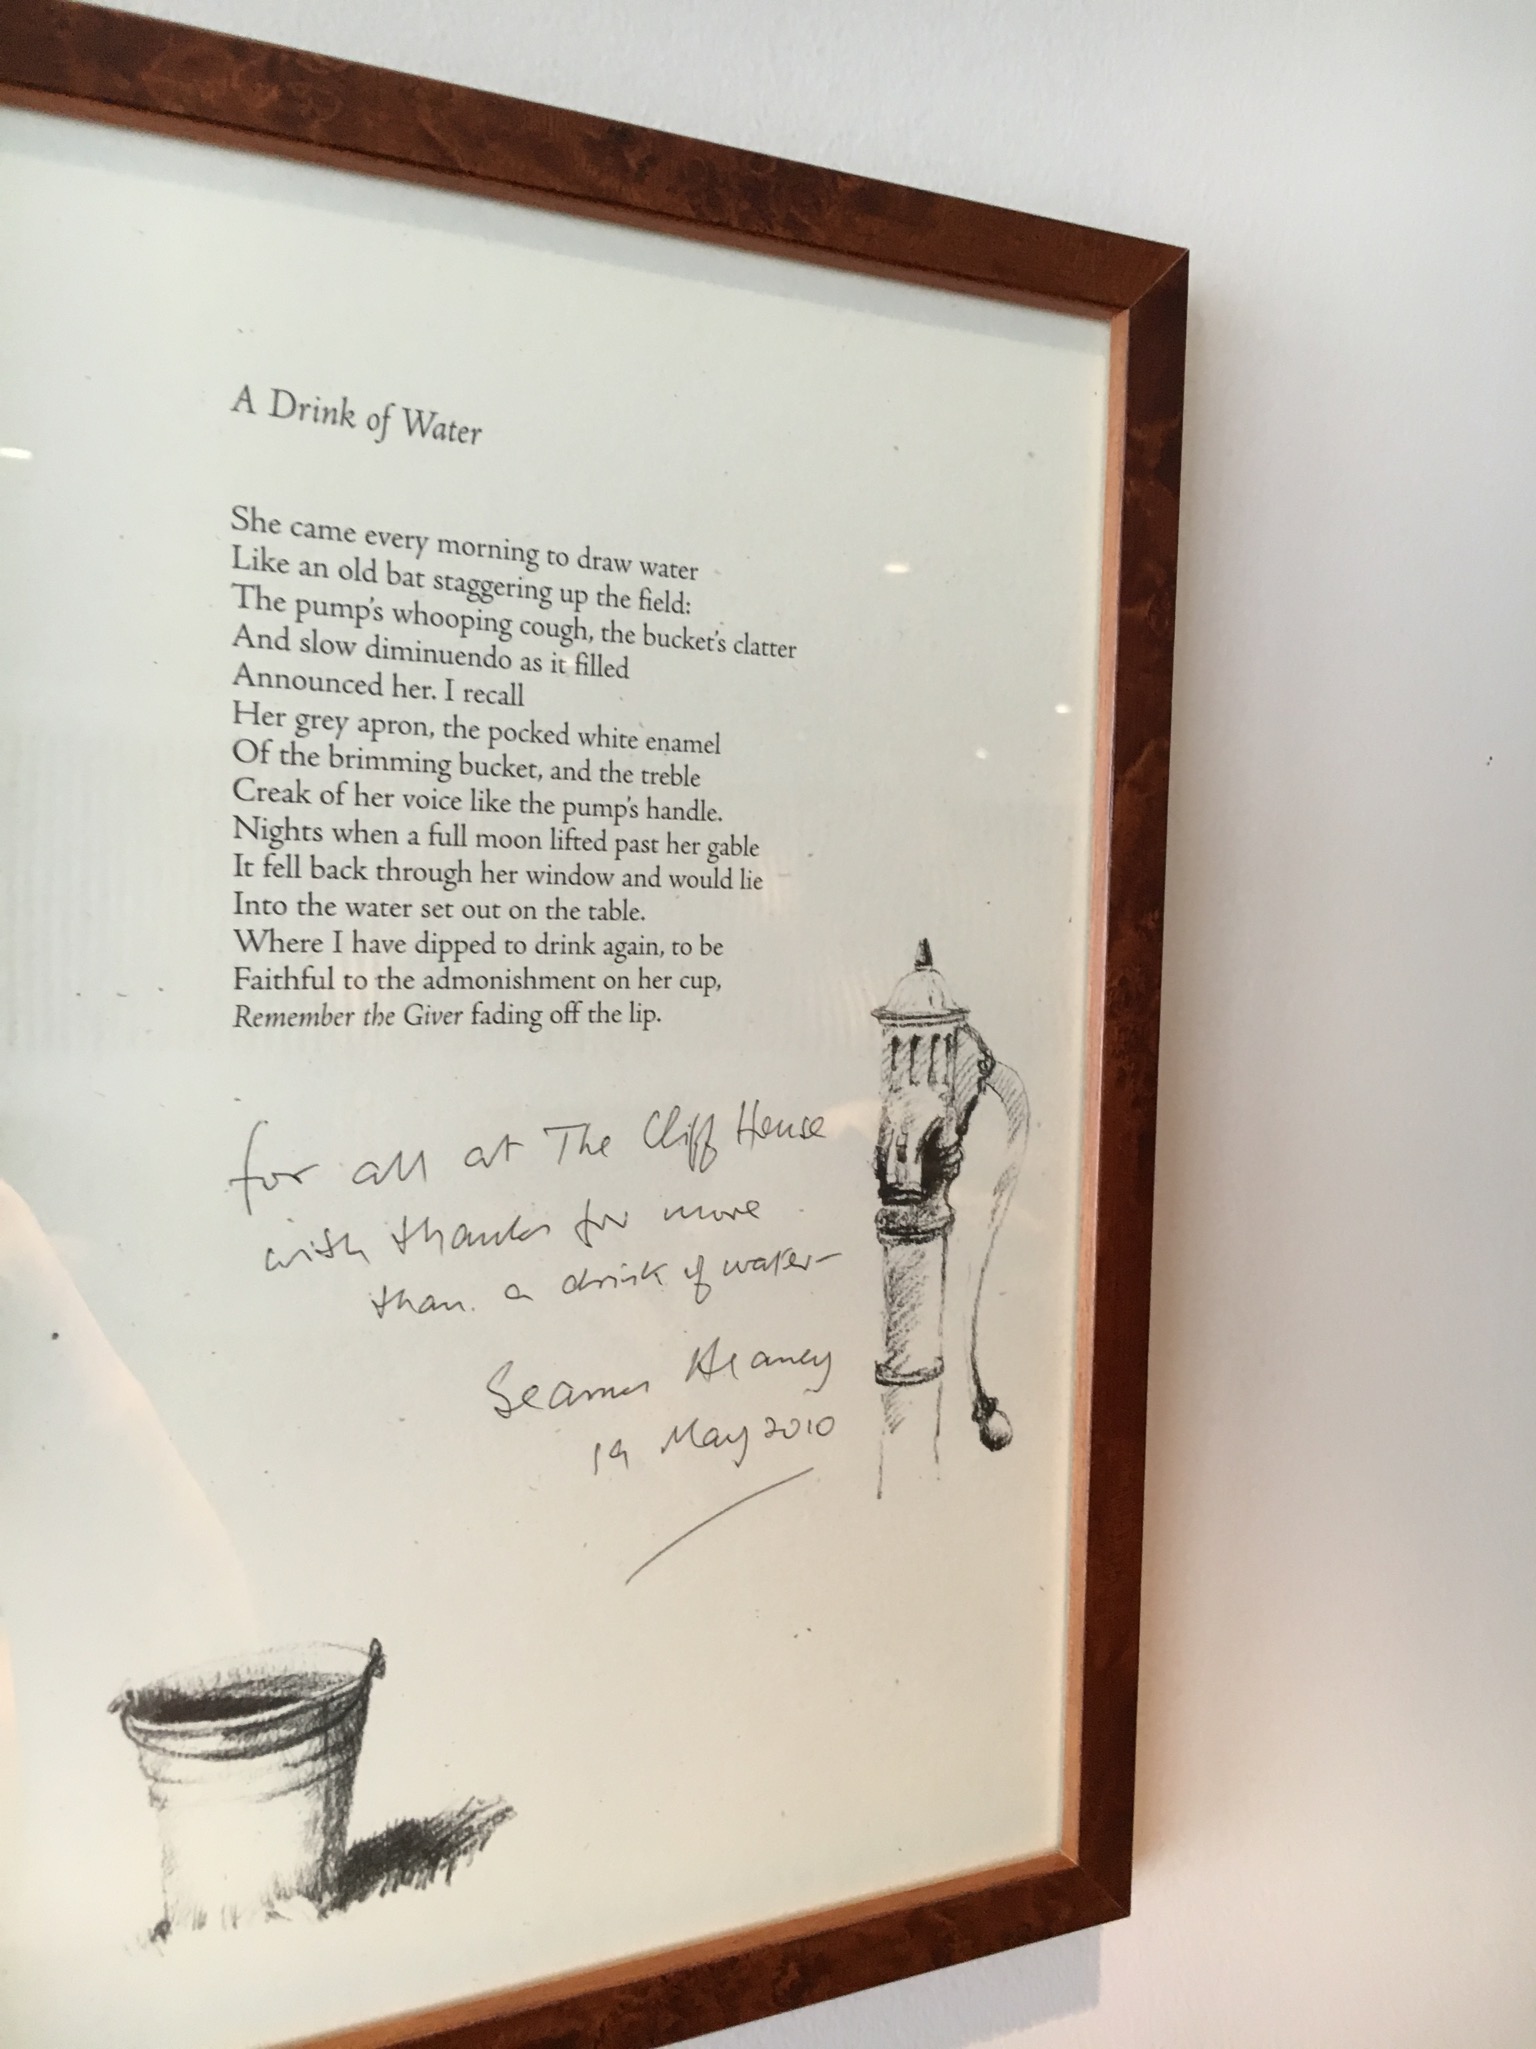 A Drink of Water
She came every morning to draw water
Like an old bat staggering up the field:
The pump's whooping cough, the bucket's clatter
And slow diminuendo as it filled
Announced her. I recall
Her grey apron, the pocked white enamel
Of the brimming bucket, and the treble
Creak of her voice like the pump's handle.
Nights when a full moon lifted past her gable
It fell back through her window and would lie
Into the water set out on the table.
Where I have dipped to drink again, to be
Faithful to the admonishment on her cup,
Remember the Giver fading off the lip.
for all at The Cliff House
with thanks for more
than a drink of water–
Seamus Heaney
19 May 2010